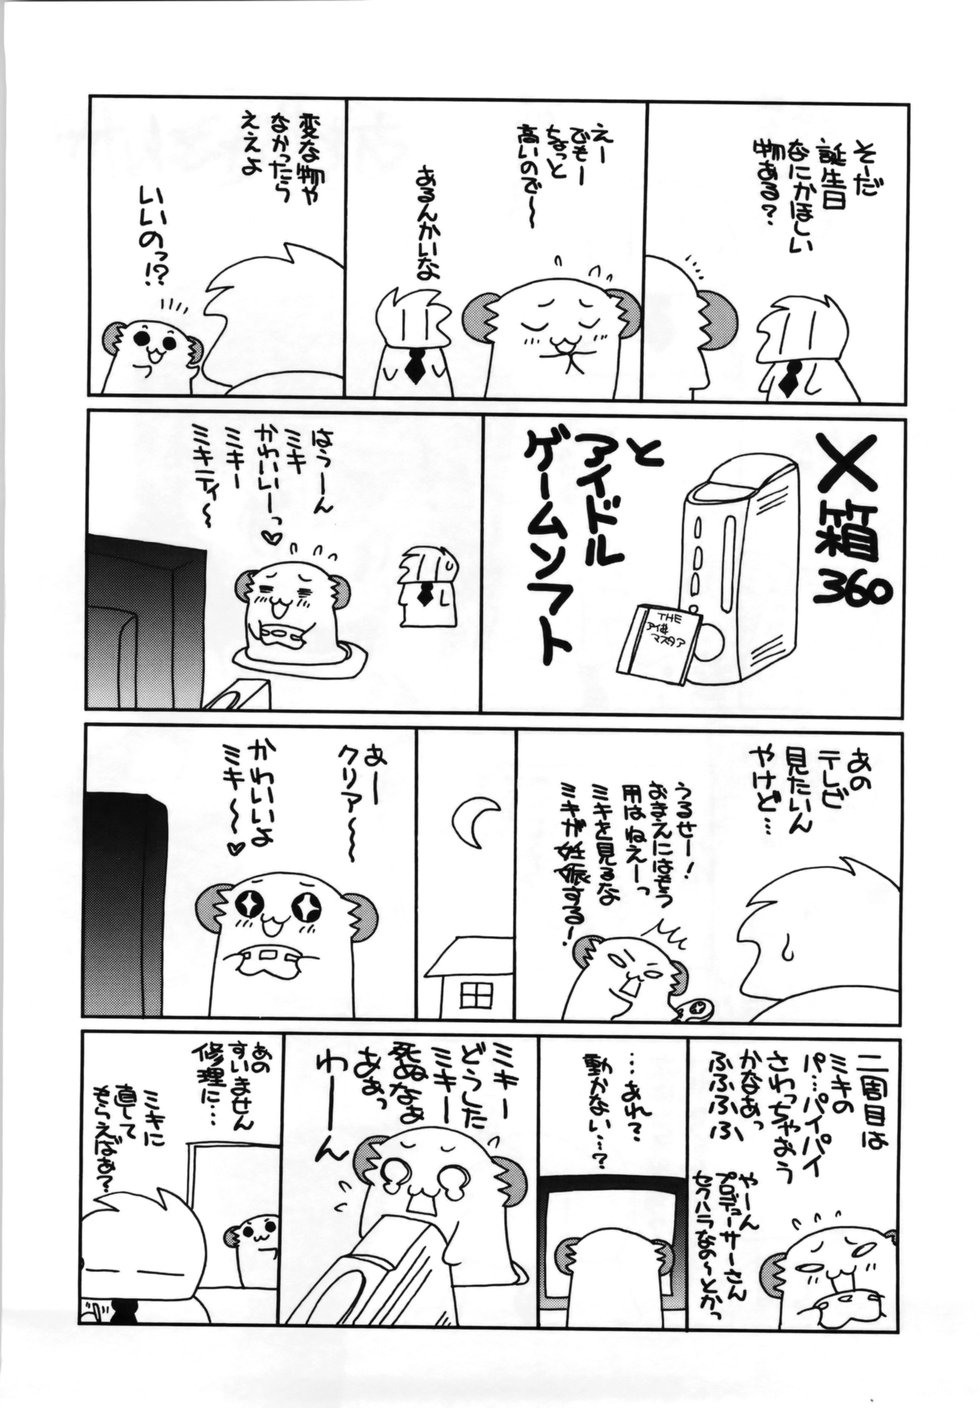 そーだ
誕生日
なにかほしい
物ある？
えー
でもー
ちょっと
高いので～
あるんかいな
変な物や
なかったら
ええよ
いいのっ!?
X箱
360
と
アイドル
ゲームソフト
THE
マスタア
はうーん
ミキ
かわいいーっ
ミキー
ミキティ～
あの
テレビ
見たいん
やけど…
うるせー！
おまえにはもう
用はねえーっ
ミキを見るな
ミキが妊娠する！
あー
クリア～～
かわいいよ
ミキ～～
二周目は
ミキの
パ…パイパイ
さわっちゃおう
かなあっ
ふふふふ
やーん
プロデューサーさん
セクハラなの～とかっ
…あれ？
動かない…？
ミキー
どうした
ミキー
死ぬなぁ
あぁっ
わーん
あの
すいません
修理に…
ミキに
直して
もらえばぁ？